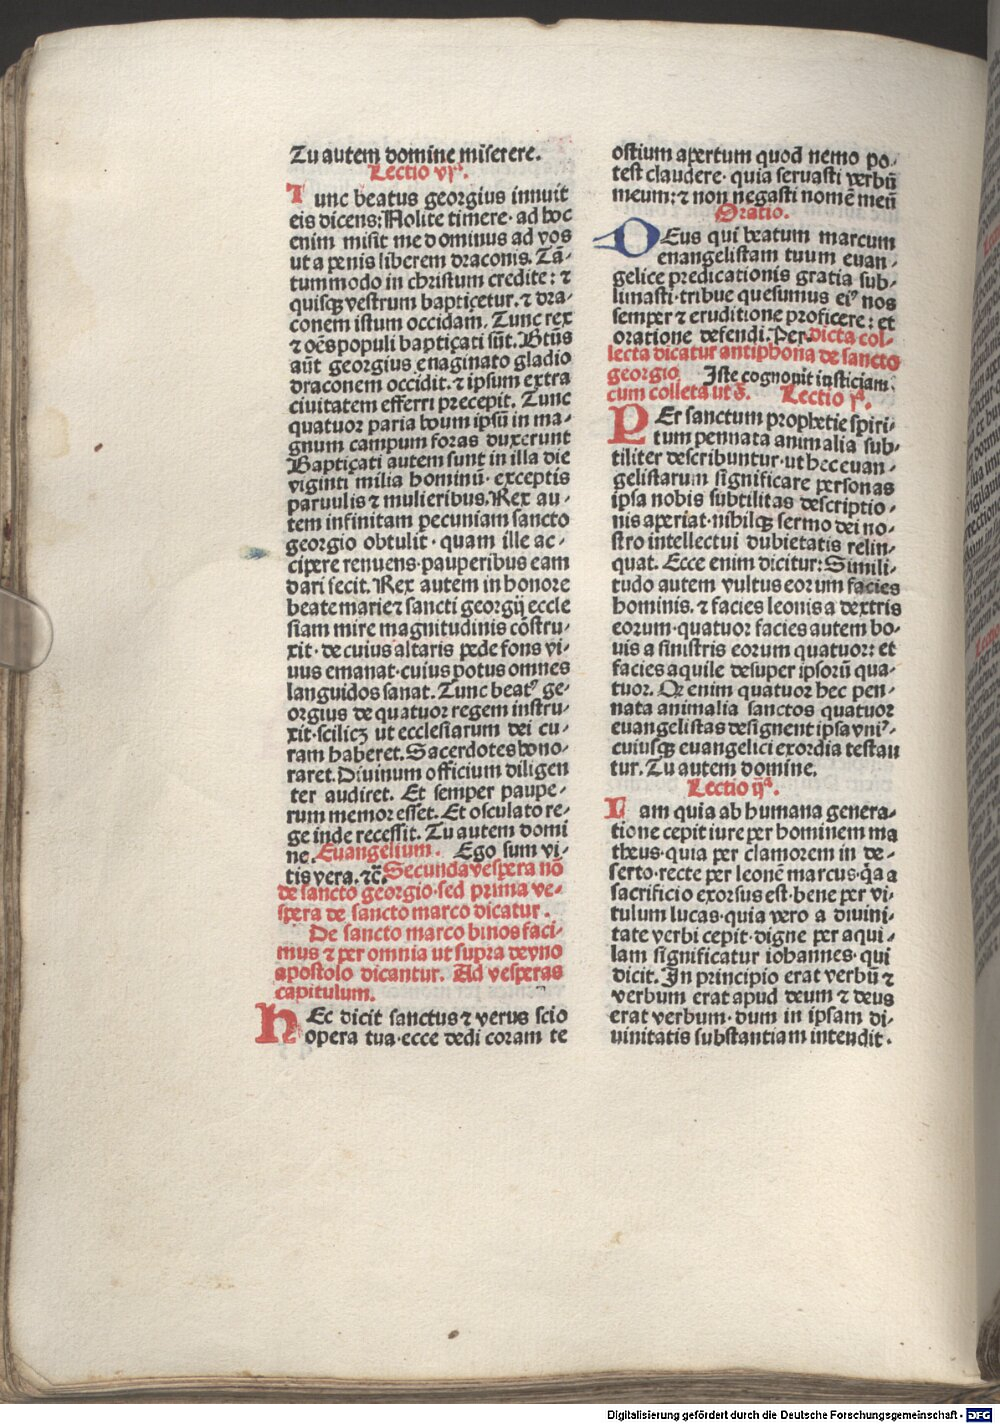 Tu autem domine miserere.
Lectio vjª.
Tunc beatus georgius innuit
eis dicens: Nolite timere· ad hoc
enim misit me dominus ad vos
ut a penis liberem draconis. Tā-
tummodo in christum credite: ⁊
quisqꝫ vestrum baptiçetur. ⁊ dra-
conem istum occidam. Tunc rex
⁊ oēs populi baptiçati sūt. Btūs
aūt georgius enaginato gladio
draconem occidit. ⁊ ipsum extra
ciuitatem efferri precepit. Tunc
quatuor paria boum ipsū in ma-
gnum campum foras duxerunt
Baptiçati autem sunt in illa die
viginti milia hominū· exceptis
paruulis ⁊ mulieribus. Rex au-
tem infinitam pecuniam sancto
georgio obtulit· quam ille ac-
cipere renuens· pauperibus eam
dari fecit. Rex autem in honore
beate marie ⁊ sancti georgij eccle
siam mire magnitudinis cōstru-
xit· de cuius altaris pede fons vi-
uus emanat· cuius potus omnes
languidos sanat. Tunc beatꝰ ge-
orgius de quatuor regem instru-
xit· scilicꝫ ut ecclesiarum dei cu-
ram haberet. Sacerdotes hono-
raret. Diuinum officium diligen
ter audiret. Et semper paupe-
rum memor esset. Et osculato re-
ge inde recessit. Tu autem domi
ne. Euangelium. Ego sum vi-
tis vera. ⁊c̄. Secunda vespera nō
de sancto georgio· sed prima ve-
spera de sancto marco dicatur.
De sancto marco binos faci-
mus ⁊ per omnia ut supra de vno
apostolo dicantur. Ad vesperas
capitulum.
HEc dicit sanctus ⁊ verus scio
opera tua· ecce dedi coram te
ostium apertum quod nemo po-
test claudere· quia seruasti verbū
meum: ⁊ non negasti nomē meū
Oratio.
DEus qui beatum marcum
enangelistam tuum euan-
gelice predicationis gratia sub-
limasti· tribue quesumus eiꝰ nos
semper ⁊ eruditione proficere: et
oratione defendi. Per. Dicta col-
lecta dicatur antiphona de sancto
georgio Iste cognouit iusticiam.
cum colleta ut s̄. Lectio jª.
PEr sanctum prophetie spiri-
tum pennata animalia sub-
tiliter describuntur· ut hec euan-
gelistarum significare personas
ipsa nobis subtilitas descriptio-
nis aperiat· nihilqꝫ sermo dei no-
stro intellectui dubietatis relin-
quat. Ecce enim dicitur: Simili-
tudo autem vultus eorum facies
hominis. ⁊ facies leonis a dextris
eorum· quatuor facies autem bo-
uis a sinistris eorum quatuor: et
facies aquile desuper ipsorū qua-
tuor. Qr enim quatuor hec pen-
nata animalia sanctos quatuor
euangelistas designent ipsa vniꝰ-
cuiusqꝫ euangelici exordia testan
tur. Tu autem domine.
Lectio ijª.
Nam quia ab humana genera-
tione cepit iure per hominem ma
theus· quia per clamorem in de-
serto· recte per leonē marcus· q̄a a
sacrificio exorsus est· bene per vi-
tulum lucas· quia vero a diuini-
tate verbi cepit· digne per aqui-
lam significatur iohannes· qui
dicit. In principio erat verbū ⁊
verbum erat apud deum ⁊ deus
erat verbum· dum in ipsam di-
uinitatis substantiam intendit.
Digitalisierung gefördert durch die Deutsche Forschungsgemeinschaft - DFG